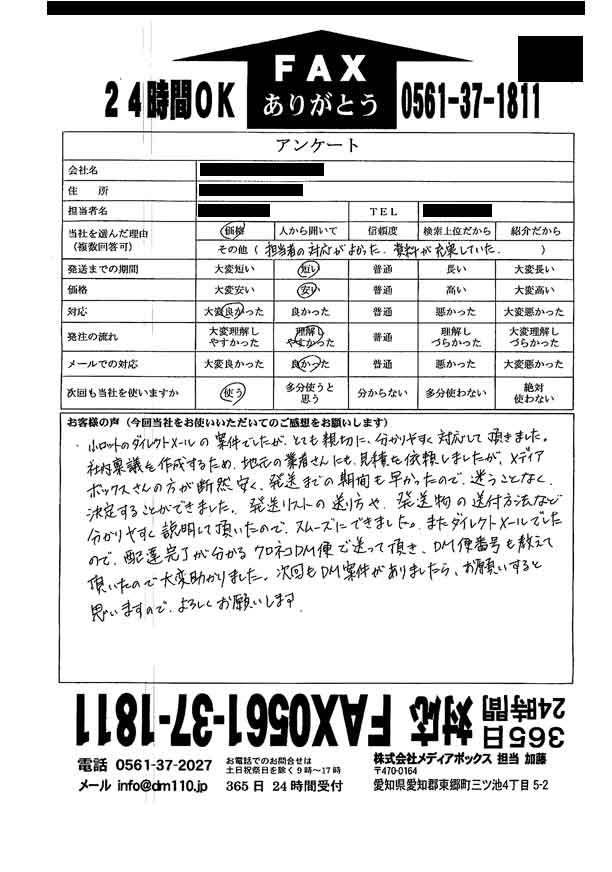 FAX
ありがとう
24時間OK
0561-37-1811
アンケート
会社名
住 所
担当者名 TEL
当社を選んだ理由（複数回答可） 価格 人から聞いて 信頼度 検索上位だから 紹介だから
その他（ 担当者の対応がよかった。資料が充実していた。 ）
発送までの期間 大変短い 短い 普通 長い 大変長い
価格 大変安い 安い 普通 高い 大変高い
対応 大変良かった 良かった 普通 悪かった 大変悪かった
発注の流れ 大変理解しやすかった 理解しやすかった 普通 理解しづらかった 大変理解しづらかった
メールでの対応 大変良かった 良かった 普通 悪かった 大変悪かった
次回も当社を使いますか 使う 多分使うと思う 分からない 多分使わない 絶対使わない
お客様の声（今回当社をお使いいただいてのご感想をお願いします）
・小ロットのダイレクトメールの案件でしたが、とても親切に、分かりやすく対応して頂きました。
社内稟議を作成するため、地元の業者さんにも、見積を依頼しましたが、メディア
ボックスさんの方が断然安く、発送までの期間も早かったので、迷うことなく、
決定することができました。発送リストの送り方や、発送物の送付方法など
分かりやすく説明して頂いたので、スムーズにできました。またダイレクトメールでした
ので、配達完了が分かるクロネコDM便で送って頂き、DM便番号も教えて
頂いたので大変助かりました。次回もDM案件がありましたら、お願いすると
思いますので、よろしくお願いします。
365日 24時間 対応 FAX0561-37-1811
電話 0561-37-2027
お電話でのお問合せは
土日祝祭日を除く9時〜17時
株式会社メディアボックス 担当 加藤
〒470-0164
メール info@dm110.jp
365日 24時間受付
愛知県愛知郡東郷町三ツ池4丁目 5-2